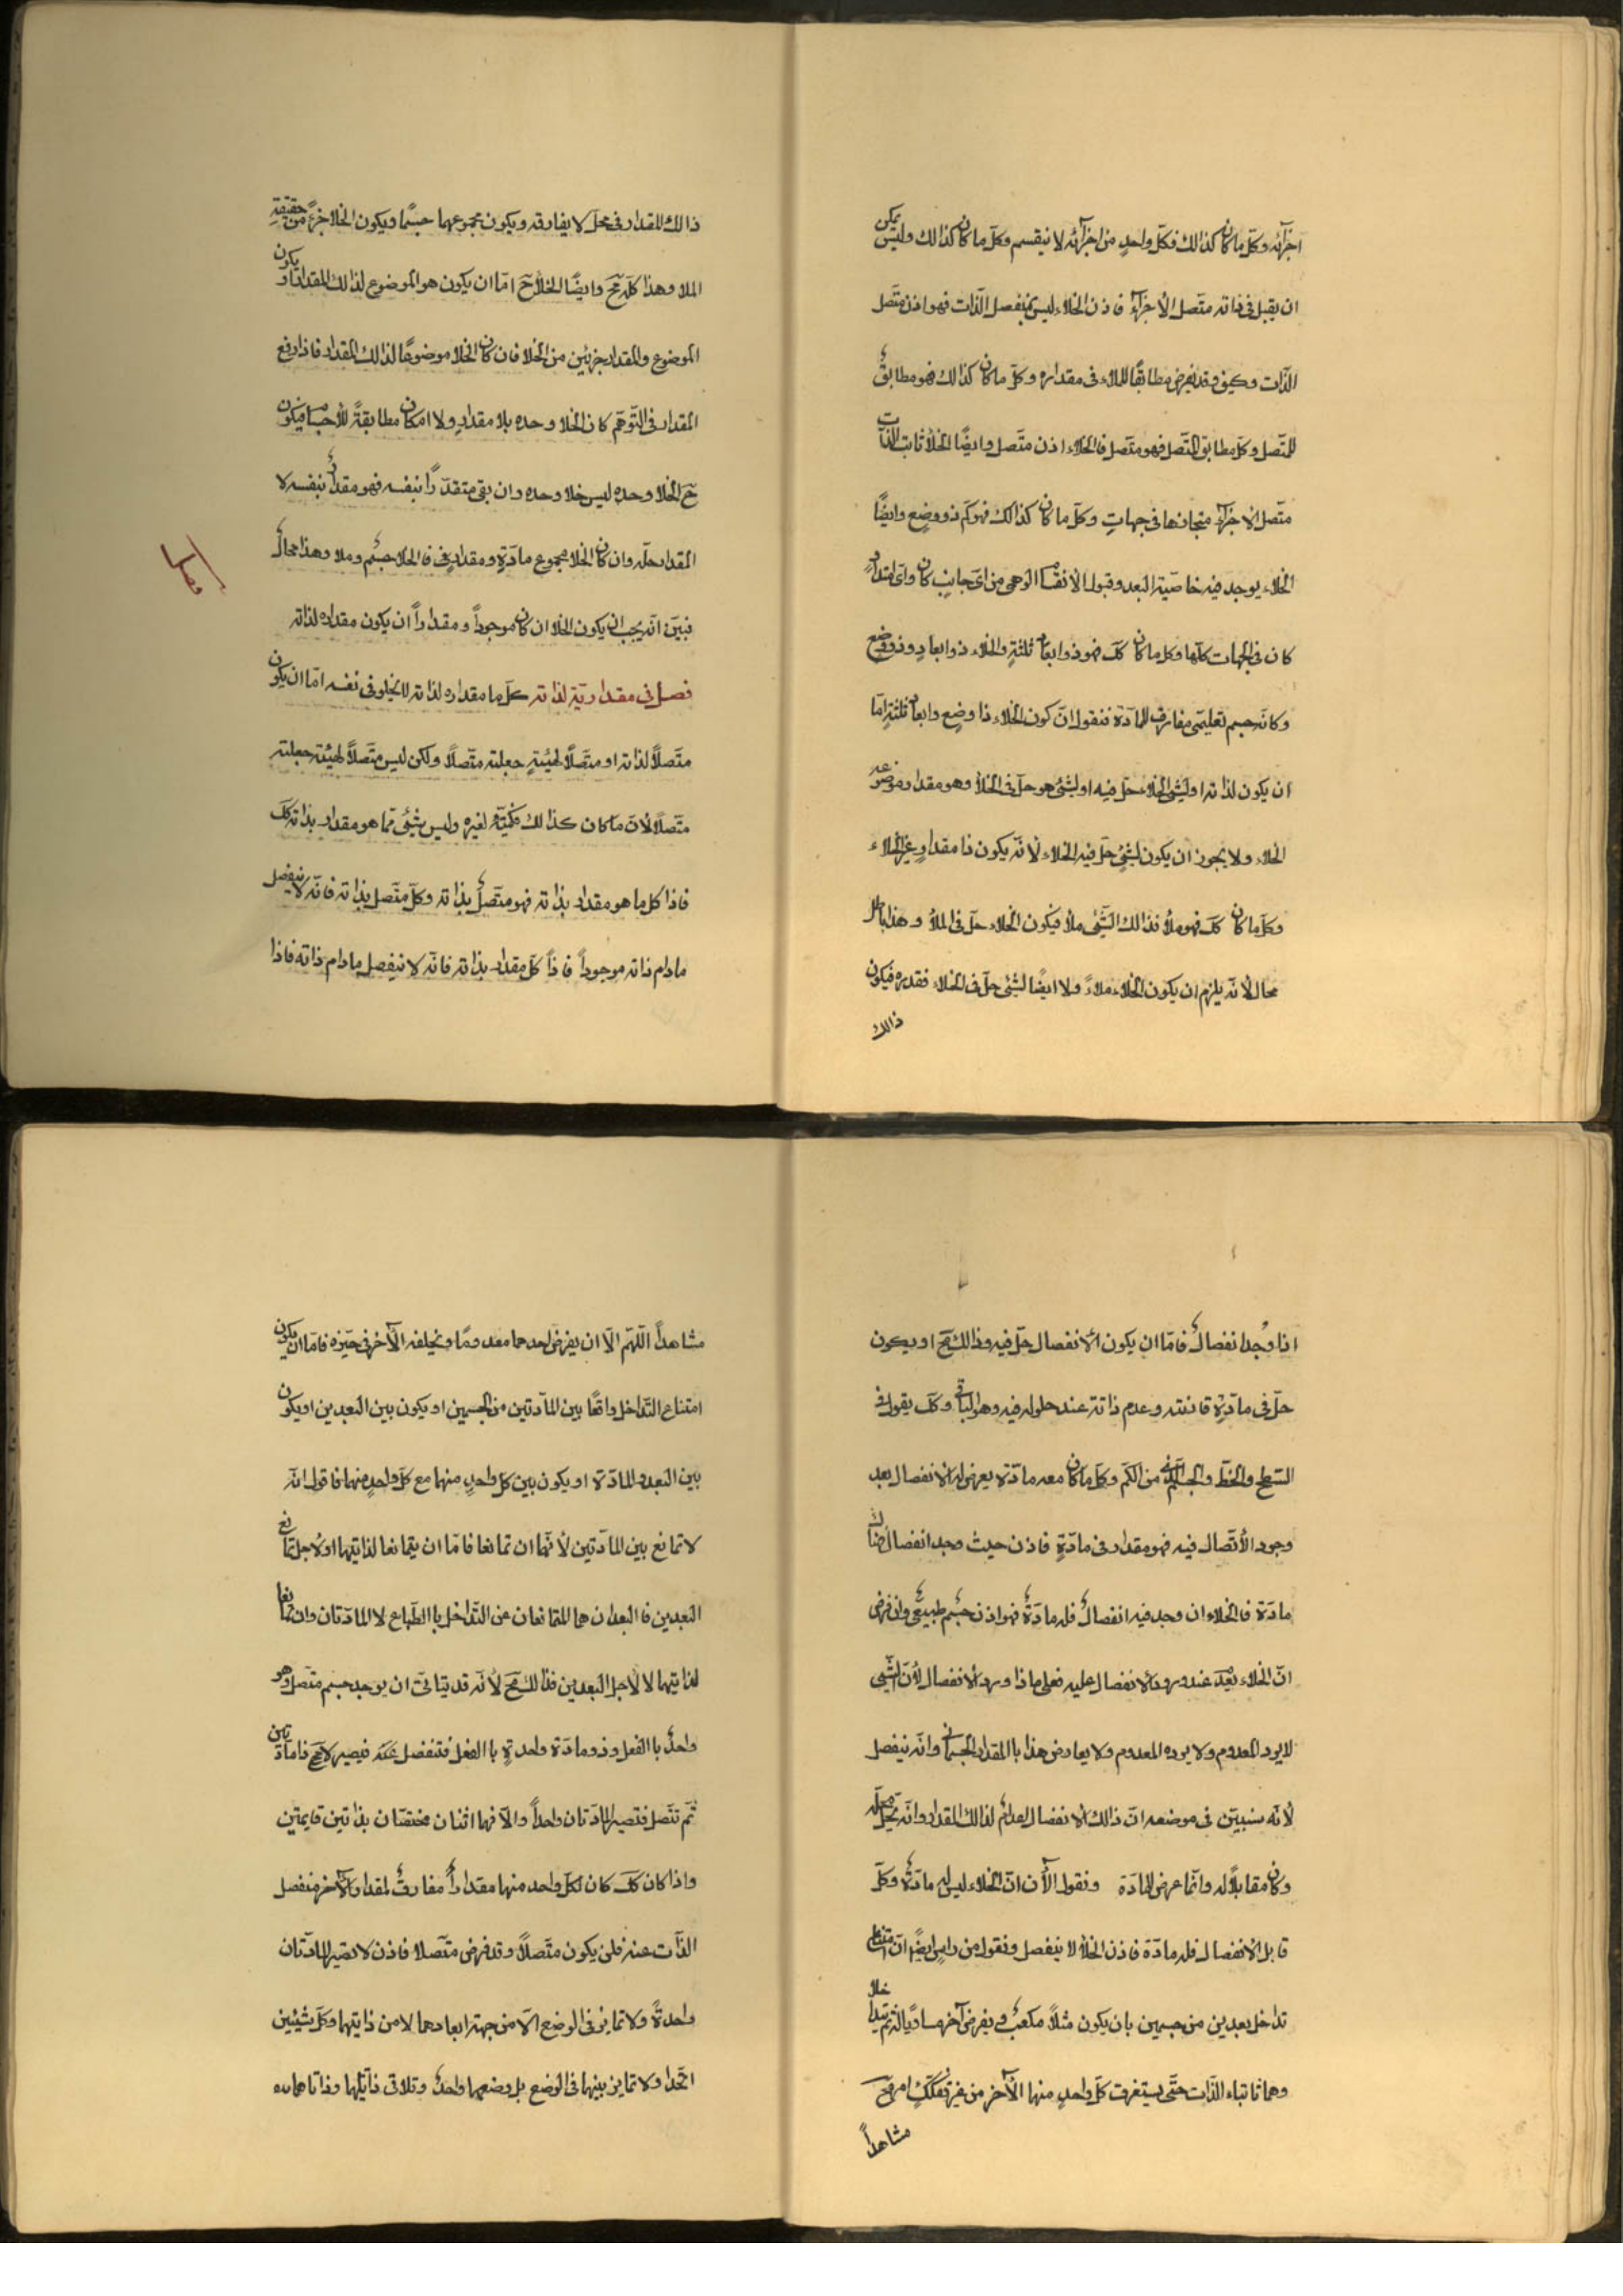 اجزآئه وكلّ ما كان كذالك فكلّ واحدٍ من اجزآئه لا ينقسم وكلّ ما كان كذالك وليس يمكن
ان يقبل فى ذاته متّصل الأجزآء فاذن الخلاء ليس بمنفصل الذّات فهو اذن متّصل
الذّات وكيف وقد يفرض مطابقًا للملاء فى مقداره وكلّ ما كان كذالك فهو مطابقٌ
للمتّصل وكلّ مطابق المتّصل فهو متّصل فالخلاء اذن متّصل وايضًا الخلأ ثابت الذّات
متّصل الاجزآء متجازها فى جهاتٍ وكلّ ما كان كذالك فهو كم ذو وضعٍ وايضًا
الخلاء يوجد فيه خاصّية البعد وقبول الانقسام الوهمى من اىّ جانبٍ كان واىّ امتدادٍ
كان فى الجهات كلّها وكل ما كان كلّ فهو ذو ابعادٍ ثلثةٍ والخلاء ذو ابعادٍ وذو وضع
وكانّه جسم تعليمى مفارق للمادّة فنقول انّ كون الخلاء ذا وضعٍ وابعادٍ ثلثةٍ امّا
ان يكون لذاته او لشئ الخلاء حلّ فيه او لشئ هو حلّ فى الخلأ وهو مقدار موضوعه
الخلاء ولا يجوز ان يكون لشئٍ حلّ فيه الخلاء لانّه يكون ذا مقدارٍ غير الخلاء
وكلّ ما كان كلّ فهو ملأ فذالك الشّئ ملأ فيكون الخلاء حلّ فى الملأ وهذا باطل
محال لأنّه يلزم ان يكون الخلاء ملاءً ولا ايضًا لشئ حلّ فى الخلاء فقدره فيكون
ذالك
ذالك المقدار فى محلّ لا يفارقه ويكون مجموعهما جسمًا ويكون الخلا جزءً من حقيقة
الملا وهذا كلّه مح وايضًا الخلأ ح امّا ان يكون هو الموضوع لذالك المقدار او يكون
الموضوع والمقدار جزئين من الخلا فان كان الخلا موضوعًا لذالك المقدار فاذا رفع
المقدار فى التّوهّم كان الخلا وحده بلا مقدارٍ ولا امكان مطابقةً للأجسام فيكون
ح الخلا وحده ليس خلا وحده وان بقى متقدّرًا بنفسه فهو مقدارٌ بنفسه لا
المقدار حلّه وان كان الخلا مجموع مادّةٍ ومقدارٍ فالخلا جسم وملا وهذا محالٌ
فبيّن انّه يجب ان يكون الخلا ان كان موجوداً ومقداراً ان يكون مقداره لذاته
فصل فى مقداريّة لذاته كلّ ما مقداره لذاته لا يخلو فى نفسه امّا ان يكون
متّصلاً لذاته او متّصلاً لهيئةٍ جعلته متّصلاً ولكن ليس متّصلاً لهيئة جعلته
متّصلاً لانّ ما كان كذالك فكميّته لغيره وليس بشئ ممّا هو مقدار بذاته كلّ
فاذا كل ما هو مقدار بذاته فهو متّصلٌ بذاته وكلّ متّصل بذاته فانّه لا ينفصل
مادام ذاته موجوداً فاذاً كلّ مقدار بذاته فانّه لا ينفصل مادام ذاته فاذا
اذا وُجد انفصالٌ فامّا ان يكون الأنفصال حلّ فيه وذالك مح او يكون
حلّ فى مادّةٍ قارنته وعدم ذاته عند حلوله فيه وهو الباقى وكلّ يقول فى
السّطح والخطّ والجسم الّذى من الكمّ وكلّ ما كان معه مادّة يعرض له الانفصال بعد
وجود الأتّصال فيه فهو مقدار فى مادّةٍ فاذن حيث وجد انفصال
مادّة فالخلاء ان وجد فيه انفصالٌ فله مادّةٌ فهو اذن جسم طبيعى وان فرض
انّ الخلاء بُعدٌ عند ورود الأنفصال عليه فعلى ماذا ورود الأنفصال لأنّ الشّئ
لا يرد المعدوم ولا يرده المعدوم ولا يعارض هذا بالمقدار الجسمانى وانّه ينفصل
لأنّه سنبيّن فى موضعه انّ ذالك الأنفصال اعدام لذالك المقدار وانّه يحلّ محلّه
وكان مقابلاً له وانّما عرض للمادّة ونقول الأن انّ الخلاء ليس له مادّةٌ وكلّ
قابل الأنفصال فله مادّة فاذن الخلأ لا ينفصل ونقول من راسٍ ايضًا انّ امتناع
تداخل بعدين من جسمين بان يكون مثلاً مكعبٌ ويفرض آخر مساويًا له ثم يتداخلا
وهما ثابتا الذّات حتّى يستغرق كلّ واحدٍ منهما الأخر من غير تفكّكٍ امر مح
مشاهداً
مشاهداً اللّهمّ الّا ان يفرض احدهما معدومًا ويخلفه الآخر فى حيّزه فامّا ان يكون
امتناع التّداخل واقعًا بين المادّتين من الجسمين او يكون بين البعدين او يكون
بين البعد والمادّة او يكون بين كل واحدٍ منهما مع كلّ واحدٍ منهما فاقول انّه
لا تمانع بين المادّتين لأنّهما ان تمانعا فامّا ان يتمانعا لذاتيهما او لأجل تمانع
البعدين فالبعدان هما المتمانعان عن التّداخل باالطّباع لا المادّتان وان تمانعا
لذاتيهما لا لأجل البعدين فذالك مح لأنّه قد يتاتى ان يوجد جسم متّصل وهو
واحدٌ باالفعل وذو مادّة واحدةٍ باالفعل فتنفصل فيصير لا مح ذا مادّتين
ثمّ تتّصل فتصير المادّتان واحداً والّا فهما اثنان مختصّان بذاتين قايمتين
واذا كان كلّ كان لكلّ واحد منهما مقداراً مفارقٌ لمقدار الآخر منفصل
الذّات عنه فلن يكون متّصلاً وقد فرض متّصلا فاذن لا تصير المادّتان
واحدةً ولا تمايز فى الوضع الّا من جهة ابعادهما لا من ذاتيهما وكلّ شيئين
اتّحدا ولا تمايز بينهما فى الوضع بل وضعهما واحدٌ وتلاقى ذاتيهما